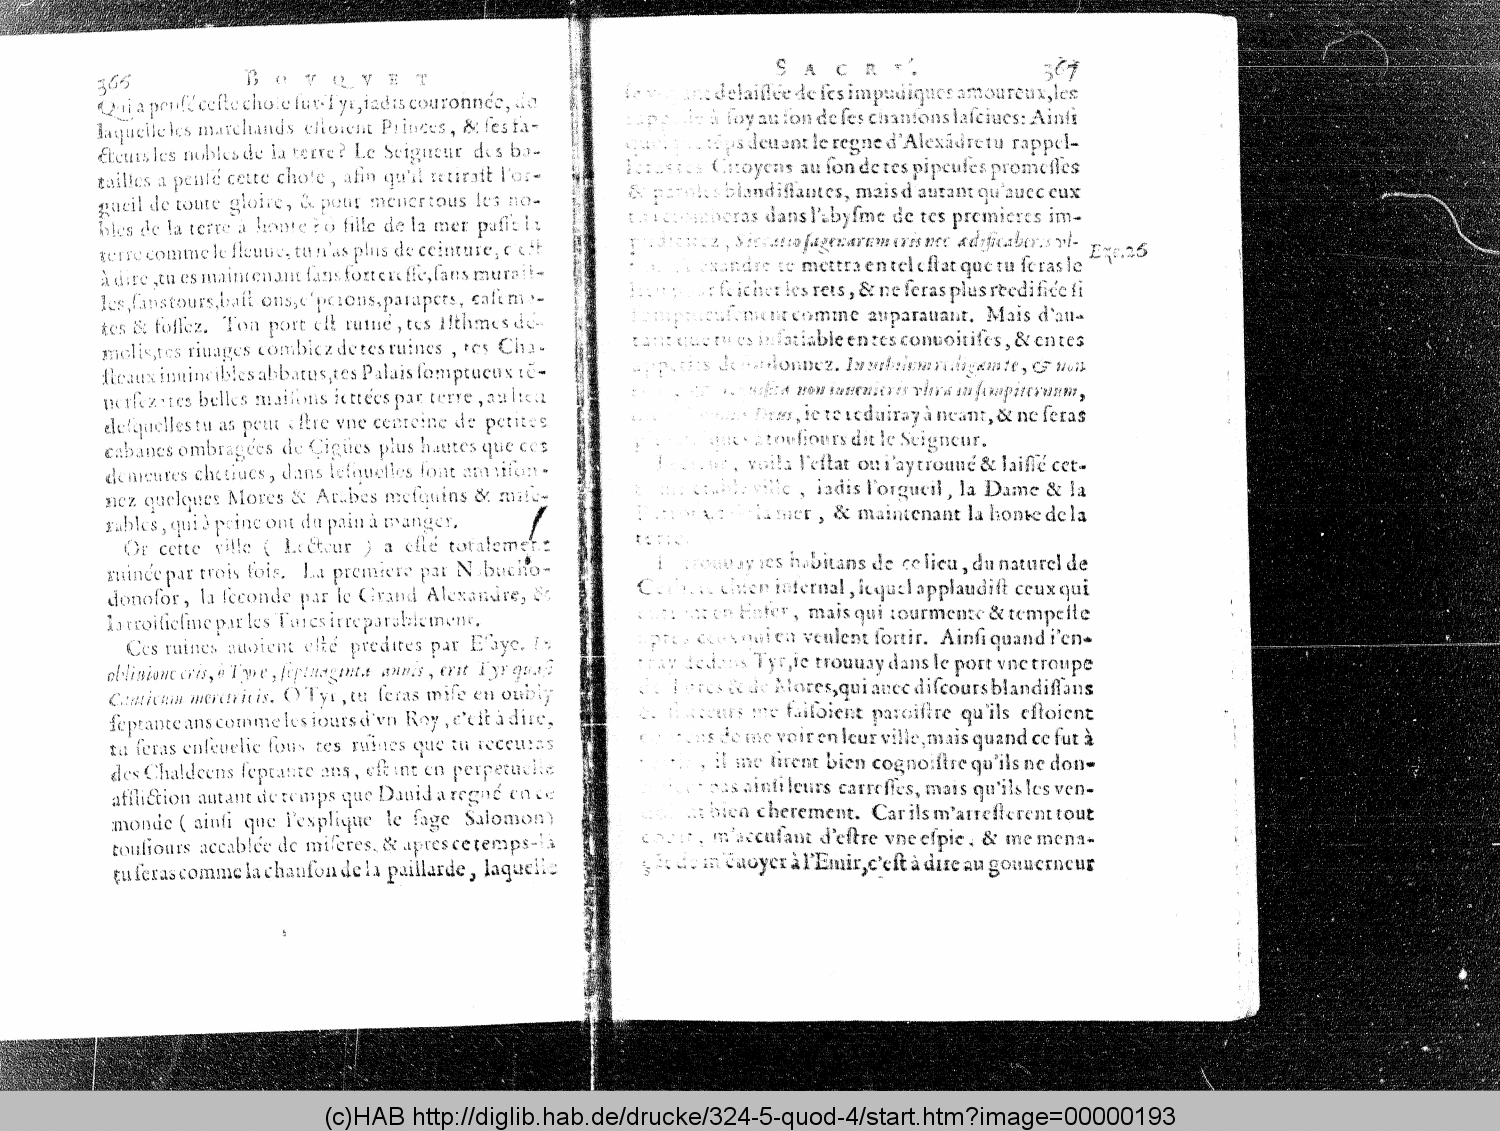 366 BOVQVET
Qui a pensé ceste chose sur Tyr, iadis couronnée, de
laquelle les marchands estoient Princes, & ses fa-
cteurs les nobles de la terre? Le Seigneur des ba-
tailles a pensé cette chose, afin qu'il retirast l'or-
gueil de toute gloire, & pour mener tous les no-
bles de la terre à honte? ô fille de la mer passe ta
terre comme le fleuue, tu n'as plus de ceinture, c'est
à dire, tu es maintenant sans forteresse, sans murail-
les, sans tours, bastions, esperons, parapets, casema-
tes & fossez. Ton port est ruiné, tes Isthmes de-
molis, tes riuages comblez de tes ruines, tes Cha-
steaux inuincibles abbatus, tes Palais somptueux rē-
uersez, tes belles maisons iettées par terre, au lieu
desquelles tu as peut estre vne centeine de petites
cabanes ombragées de Cigües plus hautes que ces
demeures chetiues, dans lesquelles sont
nez quelques Mores & Arabes mesquins & mise-
rables, qui à peine ont du pain à manger.
Or cette ville ( Lecteur ) a esté totalement
ruinée par trois fois. La premiere par Nabucho-
donosor, la seconde par le Grand Alexandre, &
la troisiesme par les Turcs irreparablement.
Ces ruines auoient esté predites par Esaye. In
obliuione eris, ô Tyre, septuaginta annis, erit Tyr quasi
Canticum meretricis. O Tyr, tu seras mise en oubly
septante ans comme les iours d'vn Roy, c'est à dire,
tu seras enseuelie sous tes ruines que tu receuras
des Chaldeens septante ans, estant en perpetuelle
affliction autant de temps que Dauid a regné en ce
monde ( ainsi que l'explique le sage Salomon)
tousiours accablée de miseres, & apres ce temps-là
tu seras comme la chanson de la paillarde, laquelle
SACRÉ. 367
se voyant delaissée de ses impudiques amoureux, les
rappelle à soy au son de ses chansons lasciues: Ainsi
quelque tēps deuant le regne d'Alexādre tu rappel-
leras tes Citoyens au son de tes pipeuses promesses
& paroles blandissantes, mais d'autant qu'auec eux
tu retomberas dans l'abysme de tes premieres im-
pudicitez, Siccatio sagenarum eris nec ædificaberis vl-
Eze. 26
Alexandre te mettra en tel estat que tu seras le
lieu pour seicher les rets, & ne seras plus reedifiée si
somptueusement comme auparauant. Mais d'au-
tant que tu es insatiable en tes conuoitises, & en tes
appetits desordonnez. In nihilum redigam te, & non
quæsita non inuenieris vltra in sempiternum,
Deus, ie te reduiray à neant, & ne seras
tousiours dit le Seigneur.
Lecteur, voila l'estat ou i'ay trouué & laissé cet-
ville, iadis l'orgueil, la Dame & la
la mer, & maintenant la honte de la
terre.
Ie trouuay les habitans de ce lieu, du naturel de
Cerbere chien infernal, lequel applaudist ceux qui
entrent en Enfer, mais qui tourmente & tempeste
apres ceux qui en veulent sortir. Ainsi quand i'en-
tray dedans Tyr, ie trouuay dans le port vne troupe
de Turcs & de Mores, qui auec discours blandissans
& flatteurs me faisoient paroistre qu'ils estoient
contens de me voir en leur ville, mais quand ce fut à
sortir, il me firent bien cognoistre qu'ils ne don-
noient pas ainsi leurs carresses, mais qu'ils les ven-
doient bien cherement. Car ils m'arresterent tout
court, m'accusant d'estre vne espie, & me mena-
çāt de m'ēuoyer à l'Emir, c'est à dire au gouuerneur
(c)HAB http://diglib.hab.de/drucke/324-5-quod-4/start.htm?image=00000193